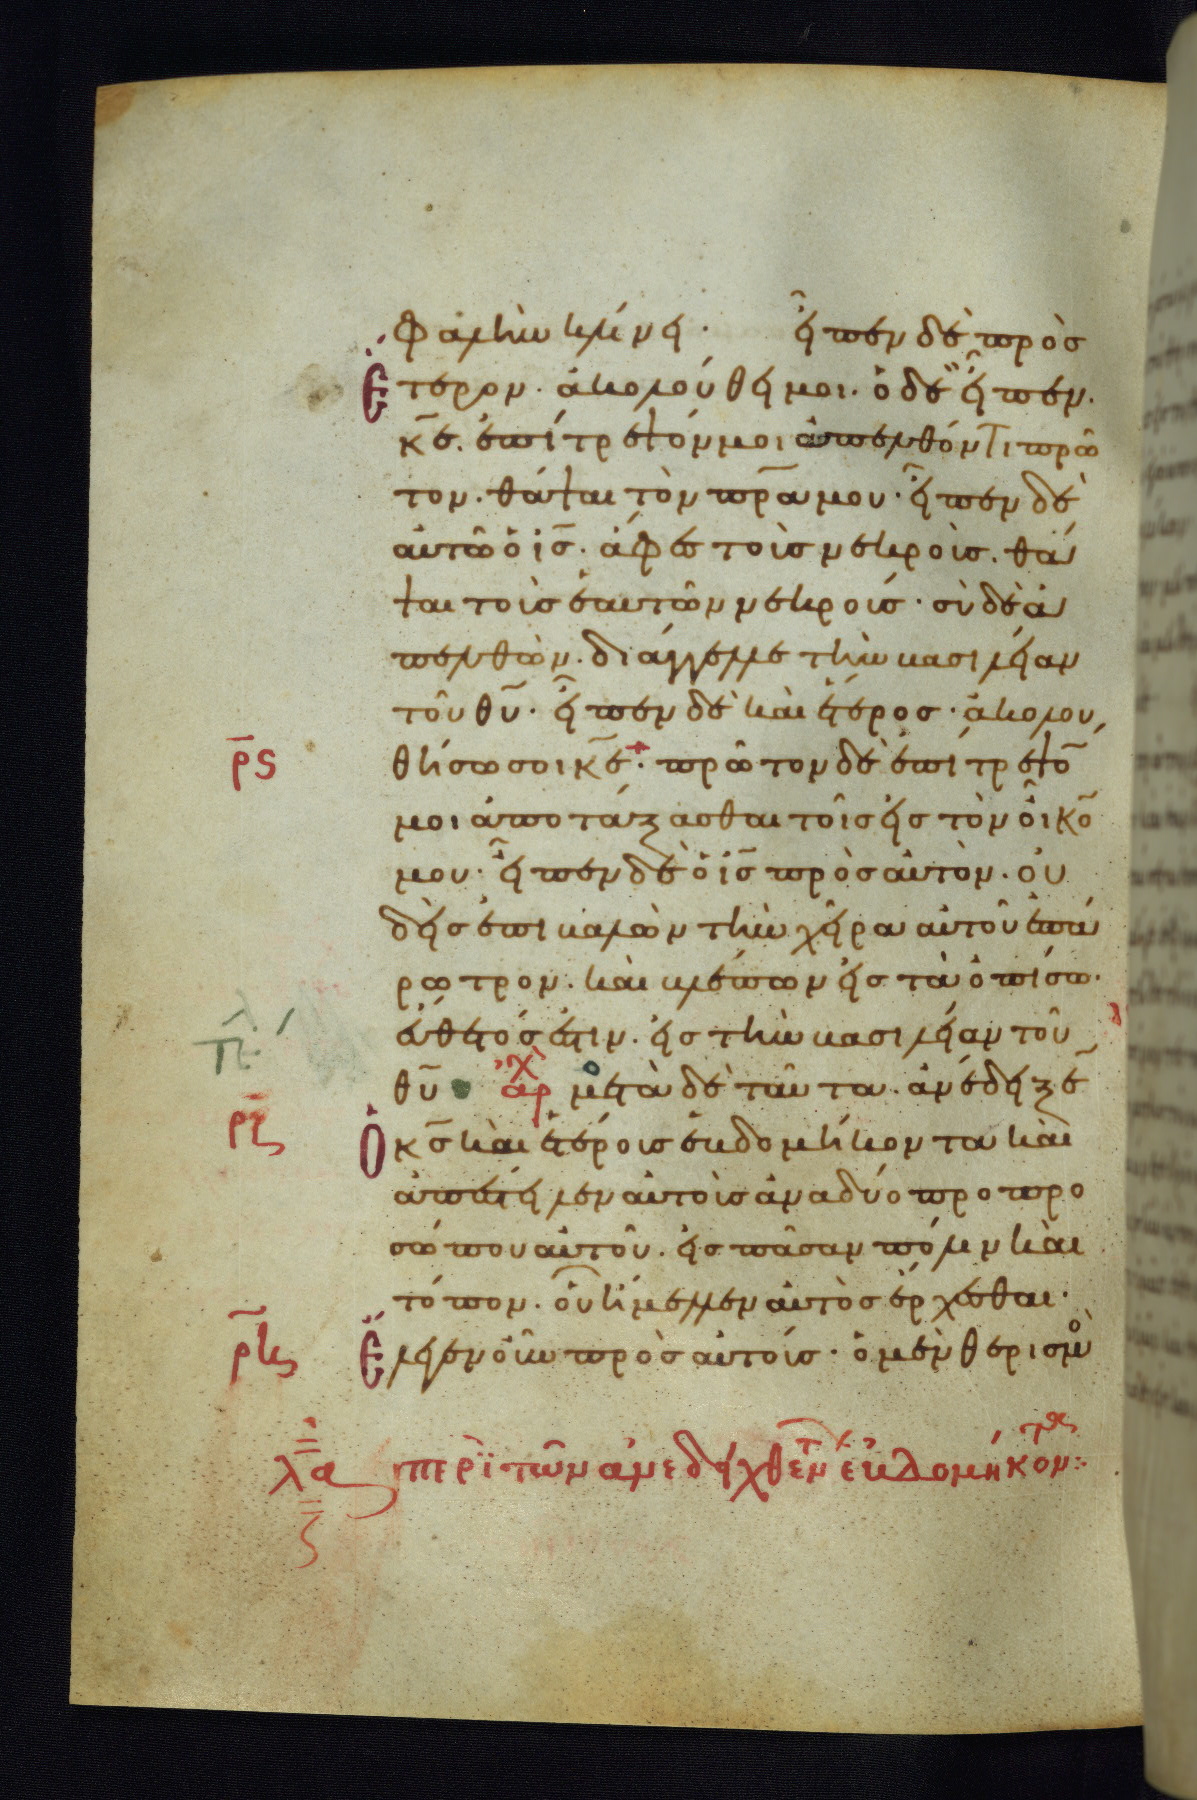 φαλὴν κλίνῃ. εἶπεν δὲ πρὸς
ἕτερον. ἀκολούθει μοι. ὁ δὲ εἶπεν.
κ̅ε̅. ἐπίτρεψόν μοι ἀπελθόντι πρῶ
τον. θάψαι τὸν π̅ρ̅α̅ μου. εἶπεν δὲ
αὐτῶ ὁ ι̅ς̅. ἄφες τοὺς νεκροὺς. θά
ψαι τοὺς ἑαυτῶν νεκρούς. σὺ δὲ ἀ
πελθὼν. διάγγελλε τὴν βασιλείαν
τοῦ θ̅υ̅. εἶπεν δὲ καὶ ἕτερος. ἀκολου
ρ̅ϛ̅ θήσω σοι κ̅ε̅. πρῶτον δὲ ἐπίτρεψο̅
μοι ἀποτάξασθαι τοῖς εἰς τὸν οἶκό
μου. εἶπεν δὲ ὁ ι̅ς̅ πρὸς αὐτὸν. οὐ
δεὶς ἐπιβαλὼν τὴν χεῖρα αὐτοῦ ἐπ' ἄ
ροτρον. καὶ βλέπων εἰς τὰ ὀπίσω.
εὔθετός ἐστιν. εἰς τὴν βασιλείαν τοῦ
θ̅υ̅ ἀρχ μετὰ δὲ ταῦτα. ἀνέδειξε̅
ρ̅ζ̅ ὁ κ̅ς̅ καὶ ἑτέρους ἑβδομήκοντα καὶ
ἀπέστειλεν αὐτοὺς ἀνὰ δύο πρὸ προ
σώπου αὐτοῦ. εἰς πᾶσαν πόλιν καὶ
τόπον. οὗ ἤμελλεν αὐτὸς ἔρχεσθαι.
ρ̅η̅ ἔλεγεν οὖν πρὸς αὐτούς. ὁ μὲν θερισμὸ
λ̅α̅ περὶ τῶν ἀνεδειχθέντ ἑβδομήκοντα: